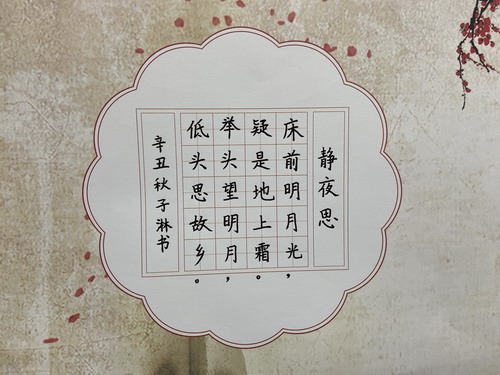 静夜思
床前明月光，
疑是地上霜。
举头望明月，
低头思故乡。
辛丑秋子淋书